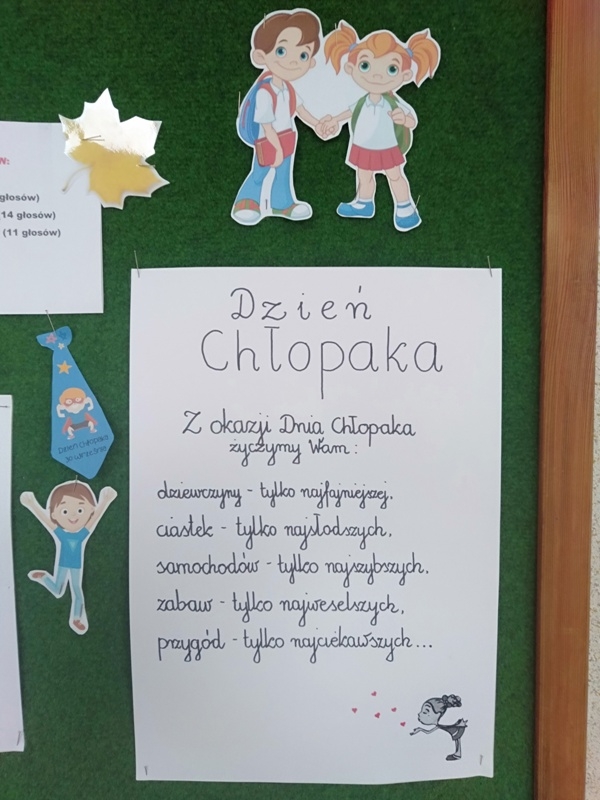 N:
głosów)
14 głosów)
(11 głosów)
Dzień
Chłopaka
Z okazji Dnia Chłopaka
życzymy Wam:
dziewczyny - tylko najfajniejszej,
ciastek - tylko najsłodszych,
samochodów - tylko najszybszych,
zabaw - tylko najweselszych,
przygód - tylko najciekawszych...
Dzień Chłopaka
30 września